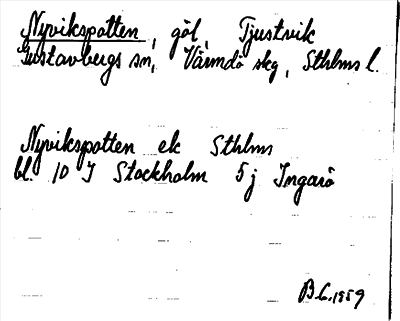 Nyvikspotten, göl, Tjustvik
Gustavbergs sn, Värmdö skg, Sthlms l.
Nyvikspotten ek Sthlms
bl. 10 I Stockholm 5 j Ingarö
B.G. 1959